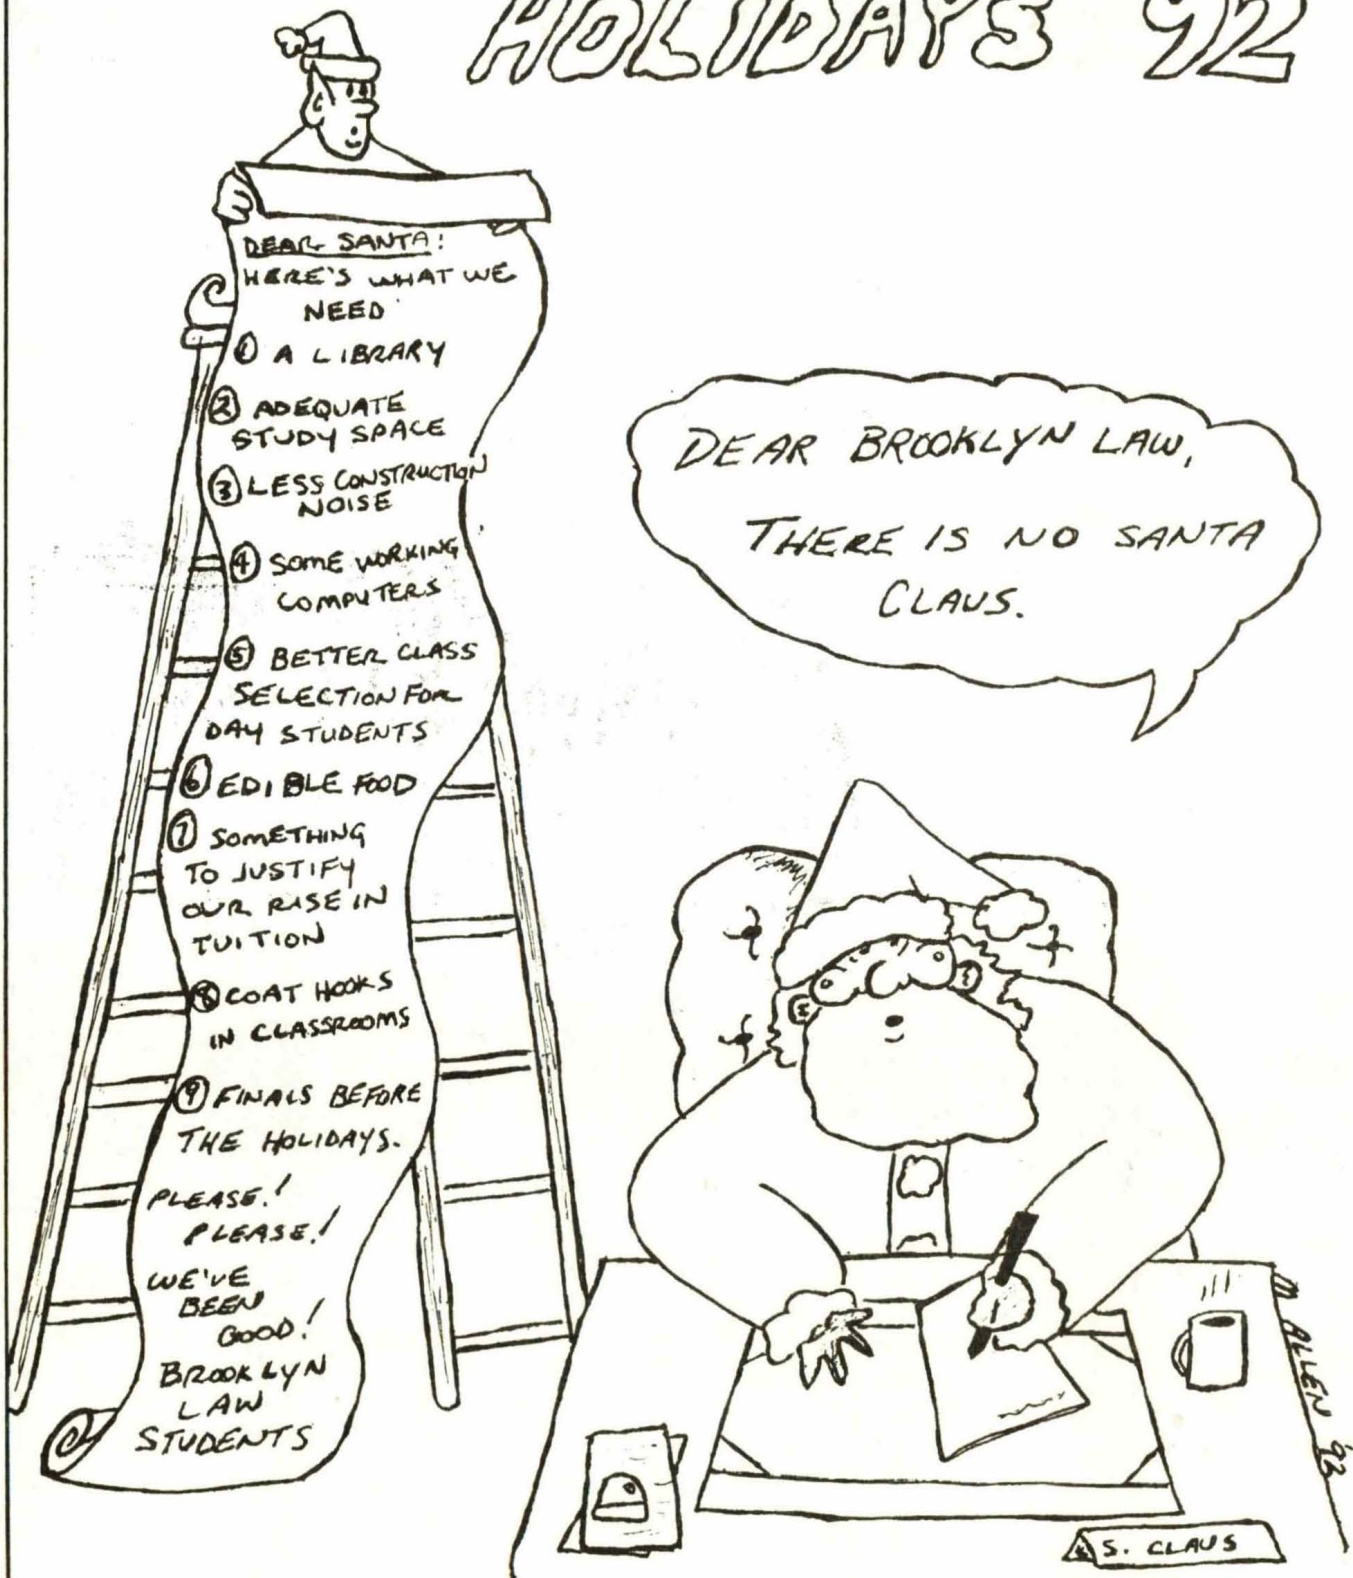 HOLIDAYS '92
DEAR SANTA:
HERE'S WHAT WE
NEED
① A LIBRARY
② ADEQUATE
STUDY SPACE
③ LESS CONSTRUCTION
NOISE
④ SOME WORKING
COMPUTERS
⑤ BETTER CLASS
SELECTION FOR
DAY STUDENTS
⑥ EDIBLE FOOD
⑦ SOMETHING
TO JUSTIFY
OUR RISE IN
TUITION
⑧ COAT HOOKS
IN CLASSROOMS
⑨ FINALS BEFORE
THE HOLIDAYS.
PLEASE!
PLEASE!
WE'VE
BEEN
GOOD!
BROOKLYN
LAW
STUDENTS
DEAR BROOKLYN LAW,
THERE IS NO SANTA
CLAUS.
M ALLEN '92
S. CLAUS